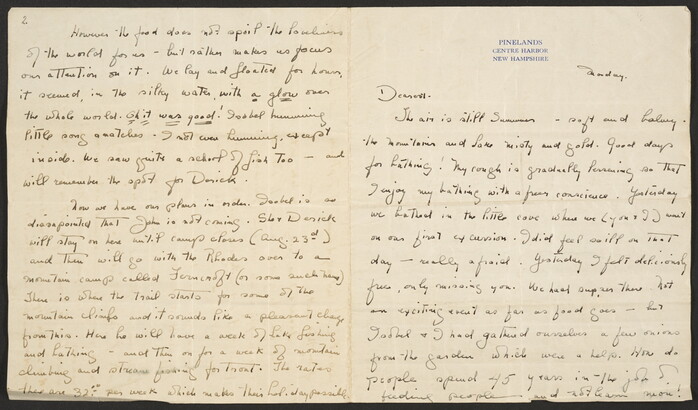 PINELANDS
CENTRE HARBOR
NEW HAMPSHIRE
Sunday.
Dearest.
The air is still Summer - soft and balmy.
the mountains and Lake misty and gold. Good days
for bathing! My cough is gradually lessening so that
I enjoy my bathing with a freer conscience. Yesterday
we bathed in the little cove where we (you & I) went
on our first excursion. I did feel so ill on that
day - really afraid. Yesterday I felt deliciously
free, only missing you. We had supper there. Not
an exciting event as far as food goes - but
Isobel & I had gathered ourselves a few onions
from the garden which were a help. How do
people spend 45 years in the job of
feeding people - and not learn more!
2
However the food does not spoil the loveliness
of the world for us - but rather makes us focus
our attention on it. We lay and floated for hours,
it seemed, in the silky water, with a glow over
the whole world. Oh it was good! Isobel humming
little song snatches - I not even humming, except
inside. We saw quite a school of fish too - and
will remember the spot for Derick.
Now we have our plans in order. Isobel is so
disappointed that John is not coming. She & Derick
will stay on here until camp closes (Aug. 23rd)
and then will go with the Rhodes over to a
mountain camp called Ferncroft (or some such name)
There is where the trail starts for some of the
mountain climbs and it sounds like a pleasant change
from this. Here he will have a week of lake fishing
and bathing - and then on for a week of mountain
climbing and stream fishing for trout. The rates
there are 32.00 per week which makes their holiday possible.